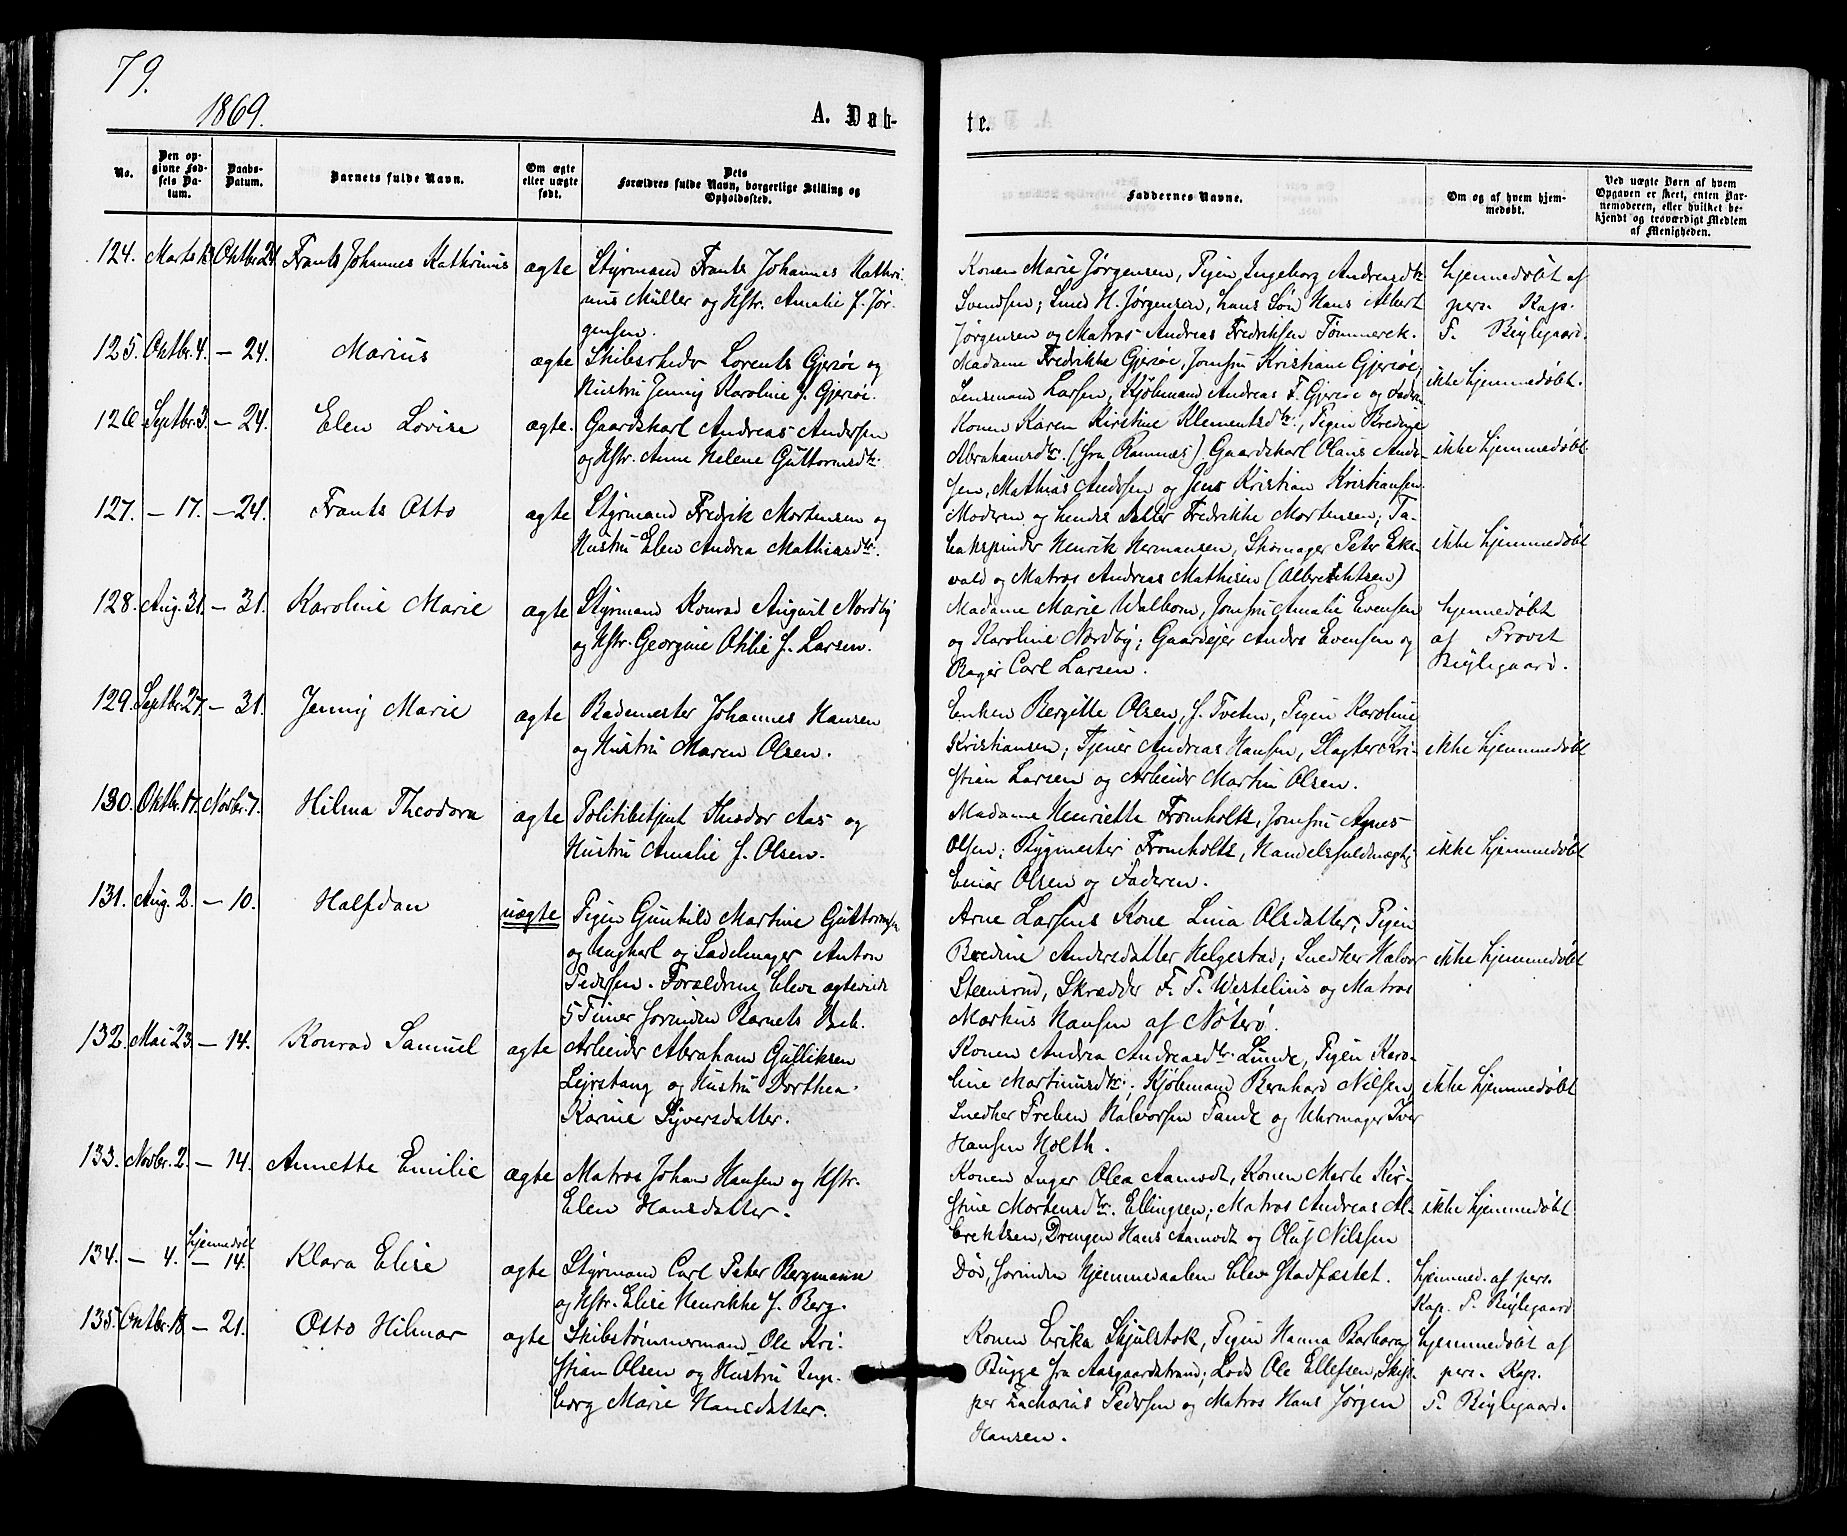 79.
1869.
A. Døb-
te.
No.
Den op-
givne Fød-
sels Da-
tum.
Daabs-
Datum.
Barnets fulde Navn.
Om ægte
eller uægte
født.
Dets
Forældres fulde Navn, borgerlige Stilling og
Opholdssted.
Faddernes Navne.
Om og af hvem hjem-
medøbt.
Ved uægte Børn af hvem
Opgaven er skeet, enten Bar-
nemoderen, eller hvilket be-
kjendt og troværdigt Medlem
af Menigheden.
124. Marts Oktbr. 24 Frants Johannes Kathrinus ægte
Styrmand Frants Johannes Kathri-
nus Müller og Hstr. Amalie f. Jør-
gensen.
Konen Marie Jørgensen, Pigen Ingeborg Andreasdtr.
Svendsen; Smed H. Jørgensen, hans Søn Hans Albert
Jørgensen og Matros Andreas Fredriksen Tømmerek.
hjemmedøbt af
pers. Kap.
P. Bøylegaard.
125. Oktbr. 4. — 24. Marius ægte
Skibsrheder Lorents Gjerøe og
Hustru Jenny Karoline f. Gjerøe.
Madame Fredrikke Gjerøe, Jomfru Kristiane Gjerøe,
Lensmand Larsen, Kjøbmand Andreas F. Gjerøe og Faderen
ikke hjemmedøbt.
126 Septbr. 3. — 24. Elen Lovise ægte.
Gaardskarl Andreas Andersen
og Hstr. Anne Helene Guttormsdtr.
Konen Karen Kirstine Klementsdtr., Pigen Bredine
Abrahamsdtr. (fra Ramnæs) Gaardskarl Olaus Ander-
sen, Mathias Andersen og Jens Kristian Kristiansen.
ikke hjemmedøbt
127. — 17. — 24. Frants Otto ægte
Styrmand Fredrik Mortensen og
Hustru Elen Andrea Mathiasdtr.
Moderen og hendes Datter Fredrikke Mortensen; To-
bakspinder Henrik Hermansen, Skomager Peter Eke-
vald og Matros Andreas Mathisen (Albrechtsen)
ikke hjemmedøbt
128. Aug. 31. — 31. Karoline Marie ægte
Styrmand Konrad August Nordby
og Hstr. Georgine Otilie f. Larsen.
Madame Marie Walborn, Jomfru Amalie Evensen
og Karoline Nordby; Gaardejer Anders Evensen og
Bager Carl Larsen.
hjemmedøbt
af Provst
Bøylegaard.
129. Septbr. 27. — 31. Jenny Marie ægte
Bademester Johannes Hansen
og Hustru Maren Olsen.
Enken Bergitte Olsen, f. Tveten, Pigen Karoline
Kristiansen; Tjener Andreas Hansen, Slagter Kri-
stian Larsen og Arbeider Martin Olsen.
ikke hjemmedøbt
130. Oktbr. 17. Novbr. 7. Hilma Theodora ægte
Politibetjent Theodor Aas og
Hustru Amalie f. Olsen.
Madame Henriette Fromholtz, Jomfru Agnes
Olsen; Bygmester Fromholtz, Handelsfuldmægtig
Einar Olsen og Faderen.
ikke hjemmedøbt
131. Aug. 2. — 10. Halfdan uægte
Pigen Gunhild Martine Guttormsen
og Ungkarl og Sadelmager Anton
Pedersen. Forældrene bleve ægteviede
5 Timer forinden Barnets Daab.
Arne Larsens Kone Lina Olsdatter, Pigen
Bredine Andersdatter Helgestad; Snedker Halvor
Steensrud, Skrædder F. P. Westelius og Matros
Markus Hansen af Nøterø.
ikke hjemmedøbt
132. Mai 23. — 14. Konrad Samuel ægte
Arbeider Abraham Gulliksen
Lejrstang og Hustru Dorthea
Karine Syversdatter.
Konen Andrea Andreasdtr. Lunde, Pigen Karo-
line Martinusdtr.; Kjøbmand Bernhard Nilsen,
Snedker Preben Halvorsen Tande og Uhrmager Iver
Hansen Holth.
ikke hjemmedøbt
133. Novbr. 2. — 14. Annette Emilie ægte
Matros Johan Hansen og Hstr.
Elen Hansdatter.
Konen Inger Olea Aamodt, Konen Marte Kir-
stine Mortensdtr. Ellingsen; Matros Andreas Al-
brektsen, Drengen Hans Aamodt og Oluf Nilssen
ikke hjemmedøbt
134. — 4. hjemmedøbt
— 14. Klara Elise ægte
Styrmand Carl Peter Bergmann
og Hstr. Elise Henrikke f. Berg.
Død, forinden Hjemmedaaben blev Stadfæstet.
hjemmed. af pers.
Kap. P. Bøylegaard
135. Oktbr. 18 — 21. Otto Hilmar ægte
Skibstømmermand Ole Kri-
stian Olsen og Hustru Inge-
borg Marie Hansdatter.
Konen Erika Skjulstok, Pigen Hanna Barbara
Bugge fra Aasgaardstrand; Lods Ole Ellefsen, Skip-
per Zacharias Pedersen og Matros Hans Jørgen
Hansen.
hjemmedøbt af
pers. Kap.
P. Bøylegaard.